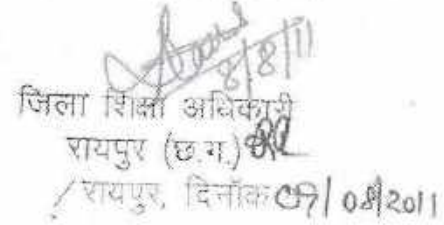 8/8/11
जिला शिक्षा अधिकारी
रायपुर (छ.ग.)
/ रायपुर, दिनॉक 09/08/2011